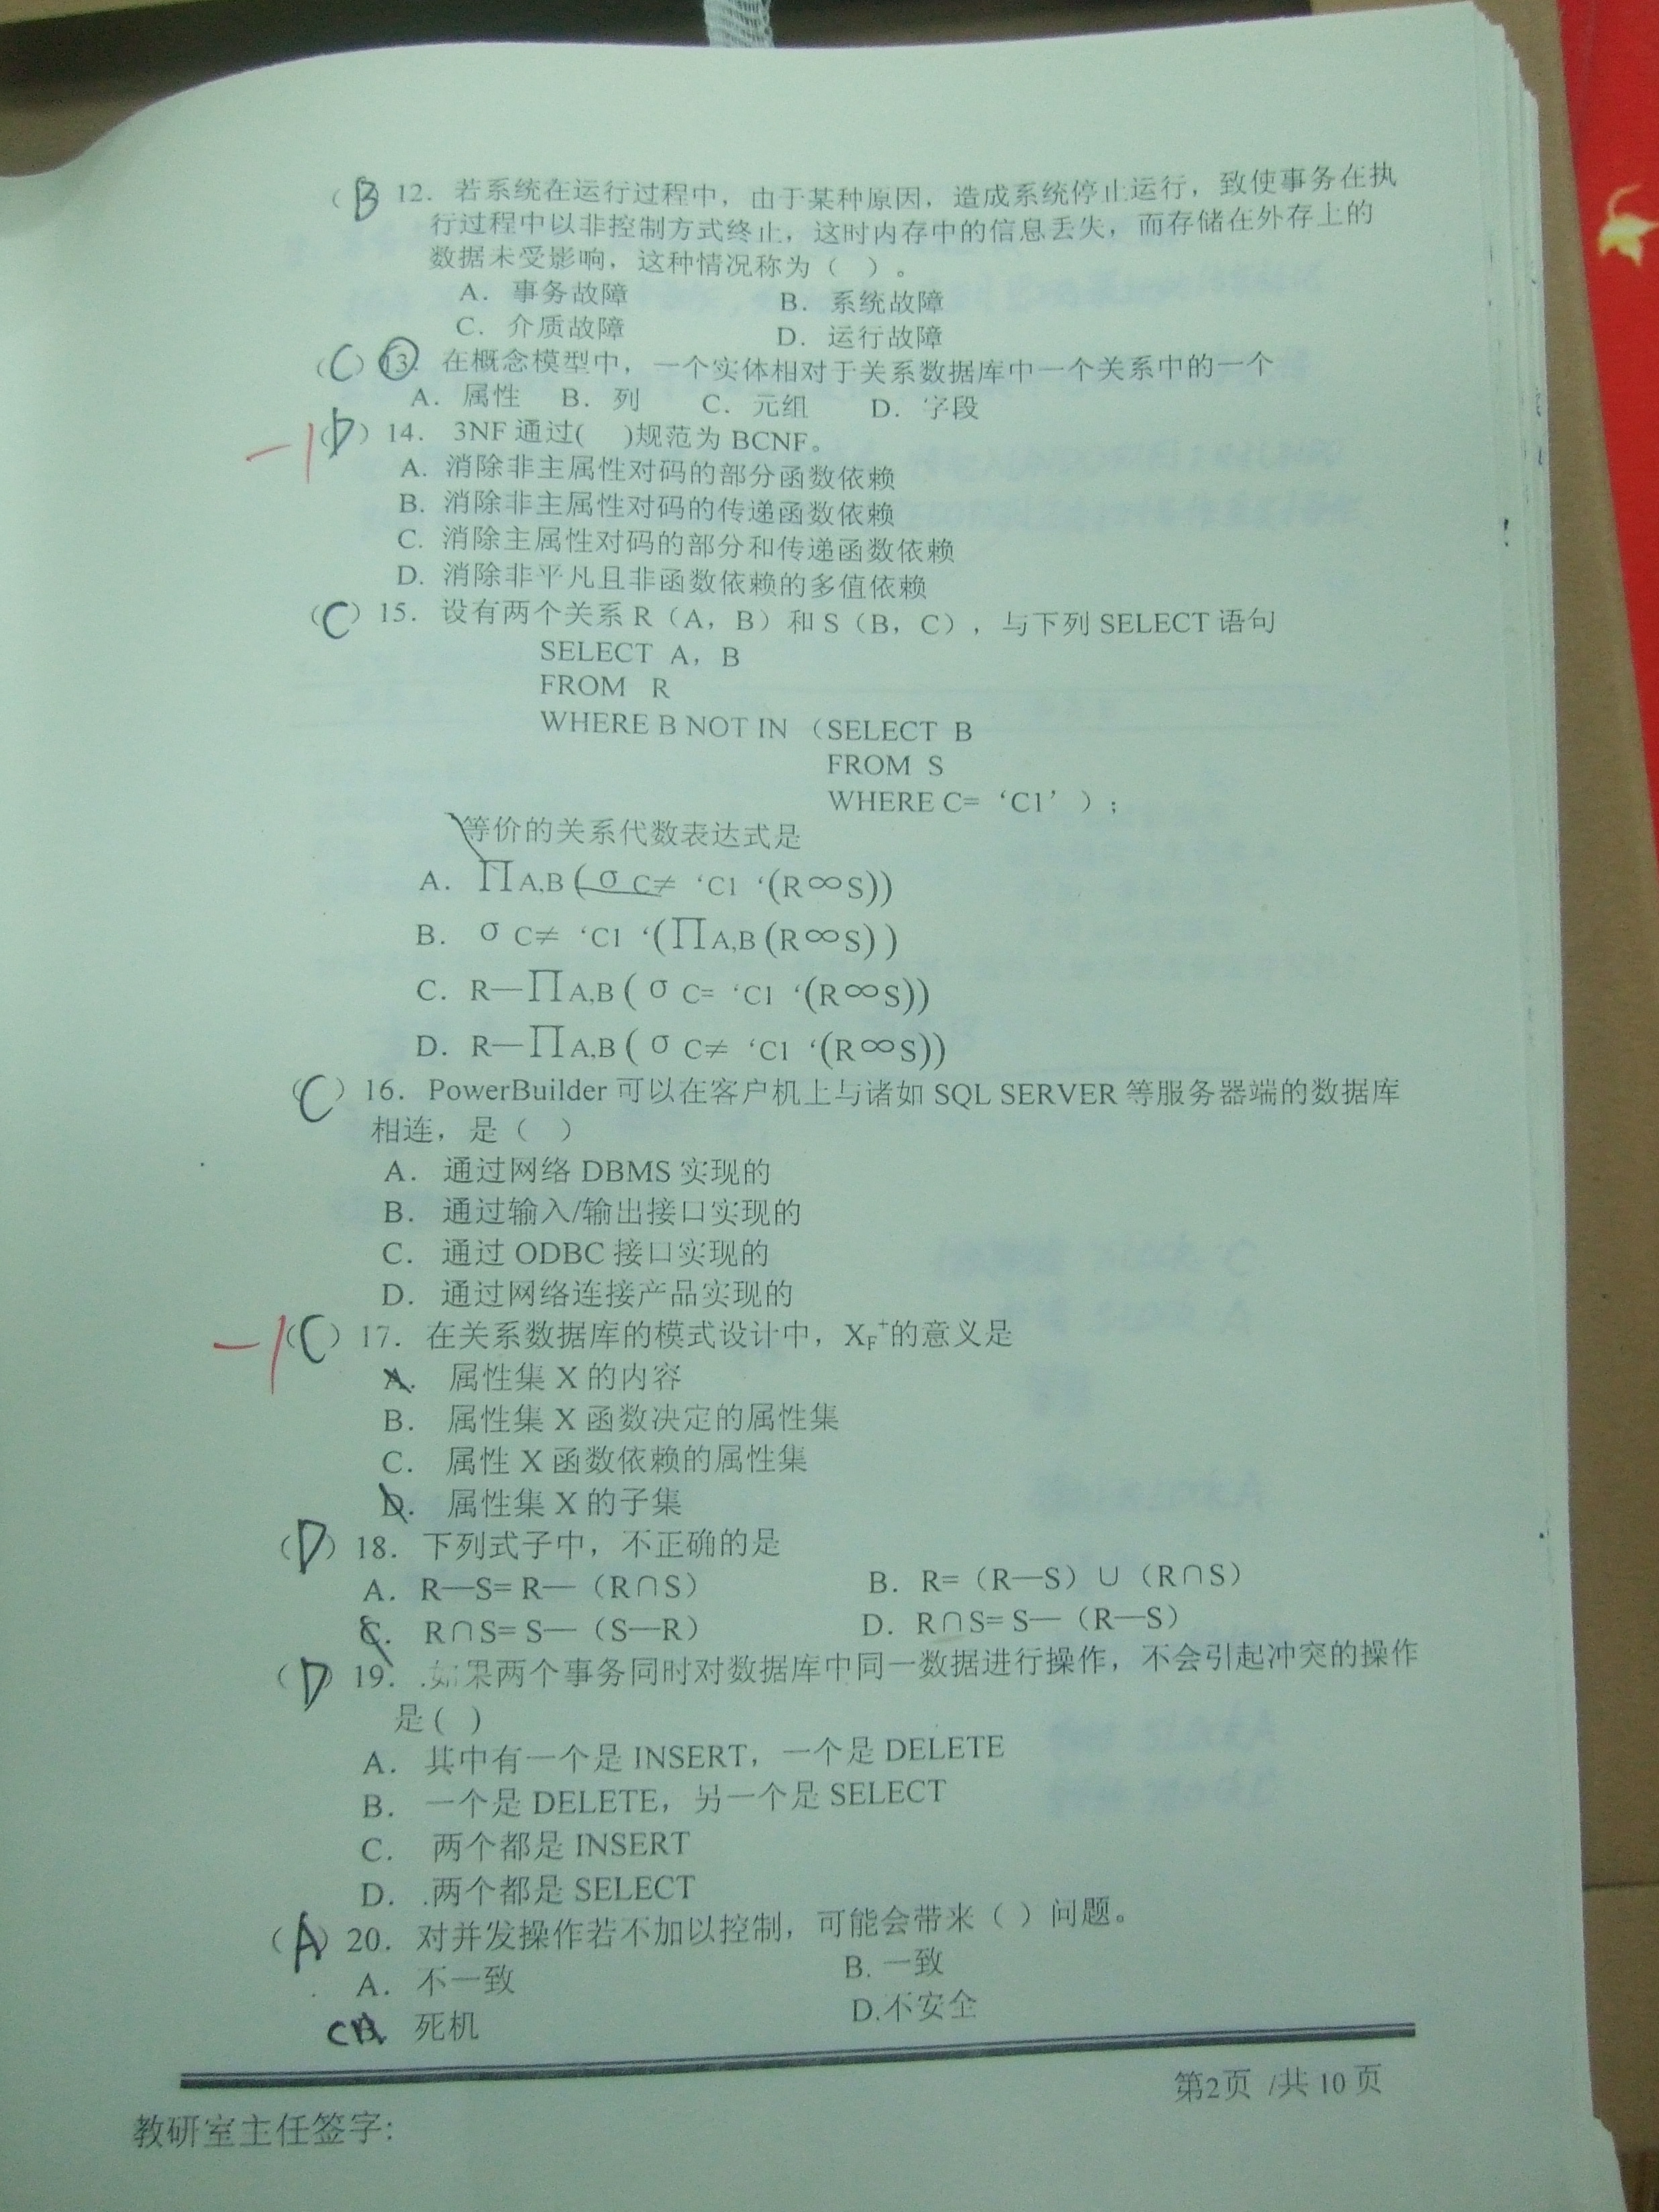 （B）12．若系统在运行过程中，由于某种原因，造成系统停止运行，致使事务在执
行过程中以非控制方式终止，这时内存中的信息丢失，而存储在外存上的
数据未受影响，这种情况称为（ ）。
A．事务故障 B．系统故障
C．介质故障 D．运行故障
（C）13．在概念模型中，一个实体相对于关系数据库中一个关系中的一个
A．属性 B．列 C．元组 D．字段
-1（D）14． 3NF 通过( )规范为 BCNF。
A. 消除非主属性对码的部分函数依赖
B. 消除非主属性对码的传递函数依赖
C. 消除主属性对码的部分和传递函数依赖
D. 消除非平凡且非函数依赖的多值依赖
（C）15．设有两个关系 R（A，B）和 S（B，C），与下列 SELECT 语句
SELECT A，B
FROM R
WHERE B NOT IN （SELECT B
FROM S
WHERE C=‘C1’）；
等价的关系代数表达式是
A．∏A,B(σ C≠ ‘C1 ‘(R∞S))
B．σ C≠ ‘C1 ‘(∏A,B(R∞S))
C．R—∏A,B(σ C= ‘C1 ‘(R∞S))
D．R—∏A,B(σ C≠ ‘C1 ‘(R∞S))
（C）16．PowerBuilder 可以在客户机上与诸如 SQL SERVER 等服务器端的数据库
相连，是（ ）
A．通过网络 DBMS 实现的
B．通过输入/输出接口实现的
C．通过 ODBC 接口实现的
D．通过网络连接产品实现的
-1（C）17．在关系数据库的模式设计中，XF+的意义是
A．属性集 X 的内容
B．属性集 X 函数决定的属性集
C．属性 X 函数依赖的属性集
D．属性集 X 的子集
（D）18．下列式子中，不正确的是
A．R—S= R—（R∩S） B．R=（R—S）∪（R∩S）
C．R∩S= S—（S—R） D．R∩S= S—（R—S）
（D）19．.如果两个事务同时对数据库中同一数据进行操作，不会引起冲突的操作
是( )
A．其中有一个是 INSERT，一个是 DELETE
B．一个是 DELETE，另一个是 SELECT
C．两个都是 INSERT
D．.两个都是 SELECT
（A）20．对并发操作若不加以控制，可能会带来（ ）问题。
A．不一致 B. 一致
C 死机 D.不安全
第2页 /共 10 页
教研室主任签字: